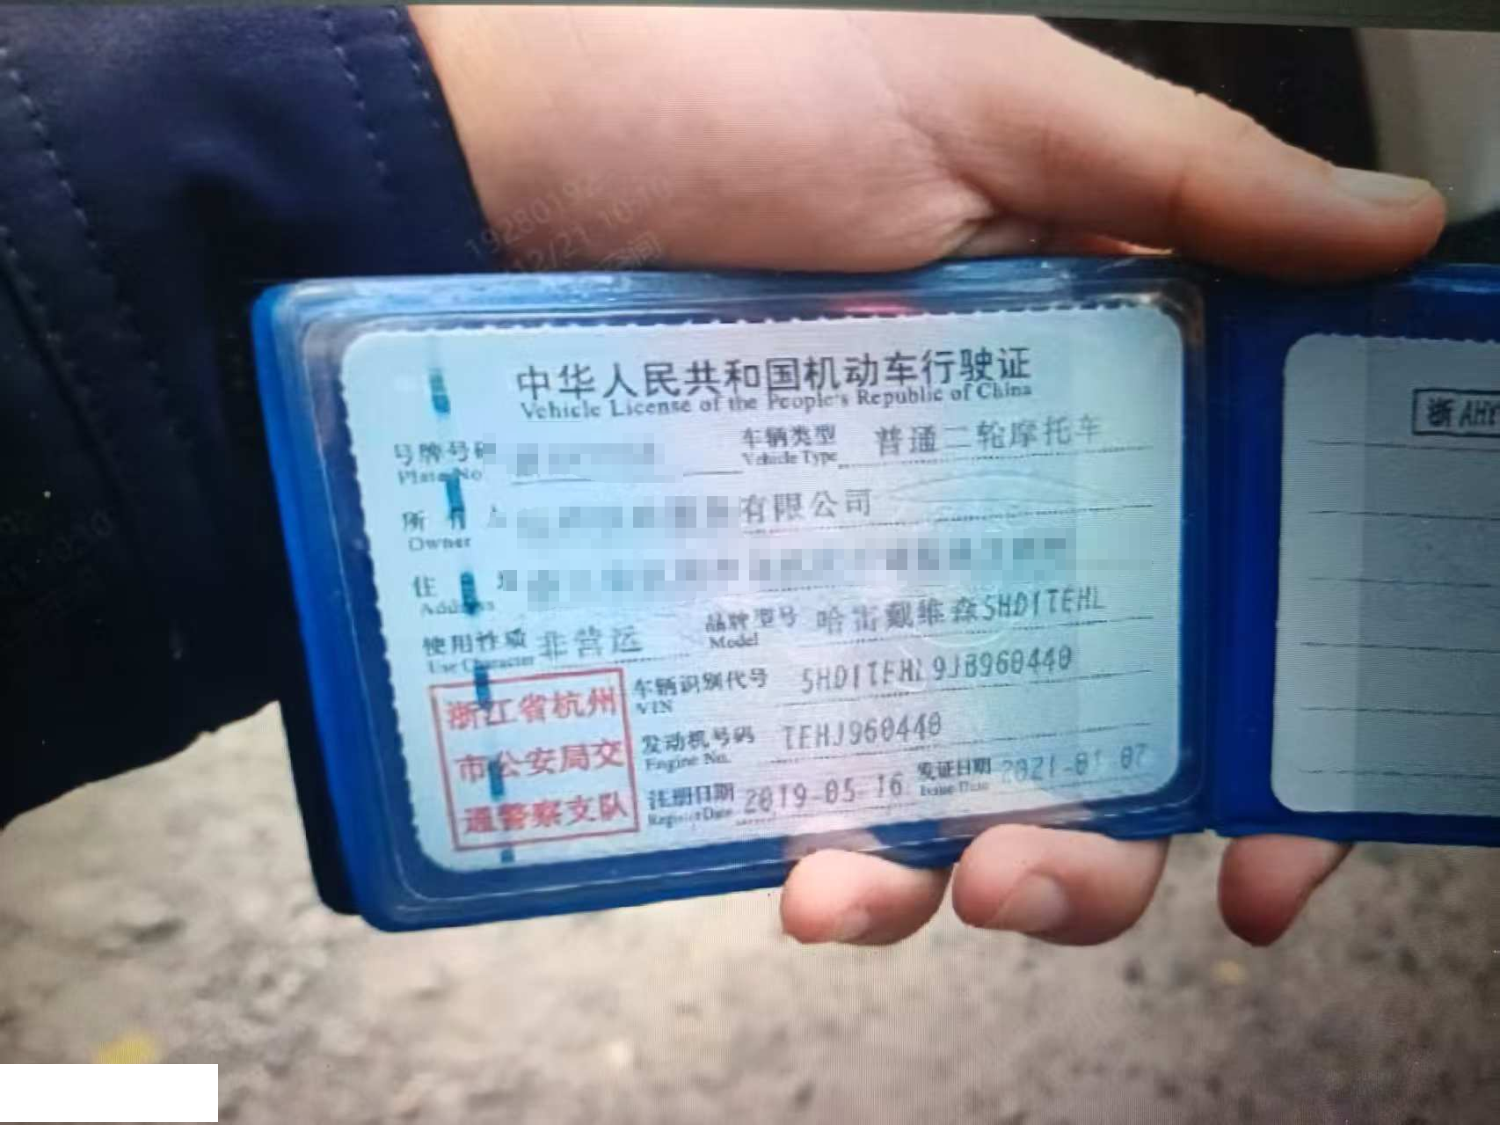 19280192
12/21 10:10
中华人民共和国机动车行驶证
Vehicle License of the People's Republic of China
号牌号码
Plate No
车辆类型 普通二轮摩托车
Vehicle Type
所有人 有限公司
Owner
住 址
Address
使用性质 非营运 品牌型号 哈雷戴维森5HD1TEHL
Use Character Model
车辆识别代号 5HD1TEHL9JB960440
VIN
发动机号码 TEHJ960440
Engine No.
注册日期 2019-05-16 发证日期 2021-01-07
Register Date Issue Date
浙江省杭州
市公安局交
通警察支队
浙AHY